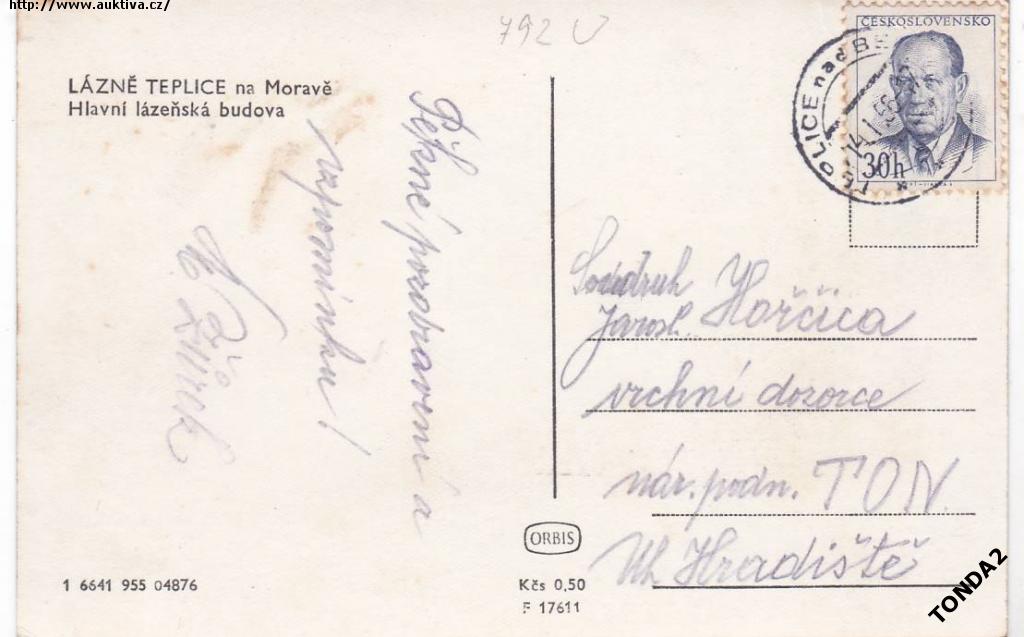 http://www.auktiva.cz/
792 U
LÁZNĚ TEPLICE na Moravě
Hlavní lázeňská budova
Pěkné pozdravení a
vzpomínku!
ČESKOSLOVENSKO
30h
TEPLICE nad BE
14.1.56
Soudruh
Jarosl. Hořčica
vrchní dozorce
nár. podn. TON
Uh Hradiště
ORBIS
1 6641 955 04876
Kčs 0,50
F 17611
TONDA2